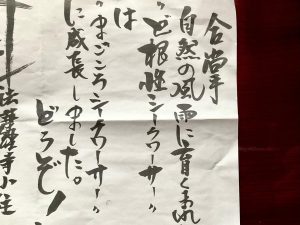 合掌
自然の風雨に育くまれ
"ど根性シークヮーサー"
は
"まごころシークヮーサー"
に成長しました。
どうぞ!
寺小住